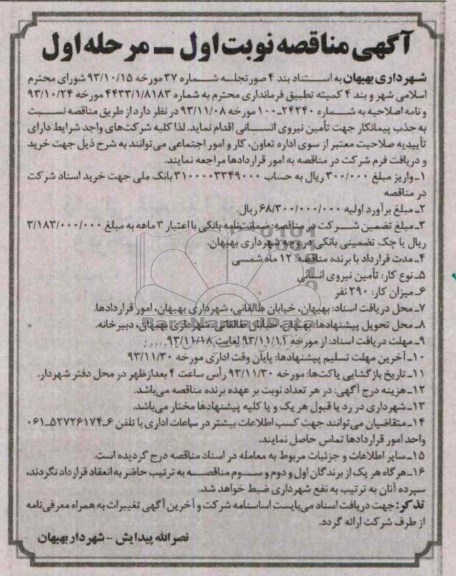 آگهی مناقصه نوبت اول ــ مرحله اول
شهرداری بهبهان به استناد بند ۴ صورتجلسه شماره ۳۷ مورخه ۹۳/۱۰/۱۵ شورای محترم
اسلامی شهر و بند ۴ کمیته تطبیق فرمانداری محترم به شماره ۴۴۳۳/۱/۸۱۸۳ مورخه ۹۳/۱۰/۲۴
و نامه اصلاحیه به شماره ۲۴۲۴۰ـ۱۰۰ مورخه ۹۳/۱۱/۰۸ در نظر دارد از طریق مناقصه نسبت
به جذب پیمانکار جهت تأمین نیروی انسانی اقدام نماید. لذا کلیه شرکت‌های واجد شرایط دارای
تأییدیه صلاحیت معتبر از سوی اداره تعاون، کار و امور اجتماعی می‌توانند به شرح ذیل جهت خرید
و دریافت فرم شرکت در مناقصه به امور قراردادها مراجعه نمایند.
۱ـ واریز مبلغ ۳۰۰/۰۰۰ ریال به حساب ۳۱۰۰۰۰۳۳۴۹۰۰۰ بانک ملی جهت خرید اسناد شرکت
در مناقصه
۲ـ مبلغ برآورد اولیه ۶۸/۳۰۰/۰۰۰/۰۰۰ ریال.
۳ـ مبلغ تضمین شرکت در مناقصه: ضمانت‌نامه بانکی با اعتبار ۳ ماهه به مبلغ ۳/۱۸۳/۰۰۰/۰۰۰
ریال یا چک تضمینی بانکی در وجه شهرداری بهبهان.
۴ـ مدت قرارداد با برنده مناقصه: ۱۲ ماه شمسی
۵ـ نوع کار: تأمین نیروی انسانی
۶ـ میزان کار: ۲۹۰ نفر
۷ـ محل دریافت اسناد: بهبهان، خیابان طالقانی، شهرداری بهبهان، امور قراردادها.
۸ـ محل تحویل پیشنهادها: بهبهان، خیابان طالقانی، شهرداری بهبهان، دبیرخانه.
۹ـ مهلت دریافت اسناد: از مورخه لغایت ۹۳/۱۱/۱۸
۱۰ـ آخرین مهلت تسلیم پیشنهادها: پایان وقت اداری مورخه ۹۳/۱۱/۳۰
۱۱ـ تاریخ بازگشایی پاکت‌ها: مورخه ۹۳/۱۱/۳۰ رأس ساعت ۴ بعدازظهر در محل دفتر شهردار.
۱۲ـ هزینه درج آگهی: در هر تعداد نوبت بر عهده برنده مناقصه می‌باشد.
۱۳ـ شهرداری در رد یا قبول هر یک و یا کلیه پیشنهادها مختار می‌باشد.
۱۴ـ متقاضیان می‌توانند جهت کسب اطلاعات بیشتر در ساعات اداری با تلفن ۶ـ۵۲۷۲۶۱۷۴ـ۰۶۱
واحد امور قراردادها تماس حاصل نمایند.
۱۵ـ سایر اطلاعات و جزئیات مربوط به معامله در اسناد مناقصه درج گردیده است.
۱۶ـ هرگاه هر یک از برندگان اول و دوم و سوم مناقصه به ترتیب حاضر به انعقاد قرارداد نگردند،
سپرده آنان به ترتیب به نفع شهرداری ضبط خواهد شد.
تذکر: جهت دریافت اسناد می‌بایست اساسنامه شرکت و آخرین آگهی تغییرات به همراه معرفی‌نامه
از طرف شرکت ارائه گردد.
نصرالله پیدایش ـ شهردار بهبهان